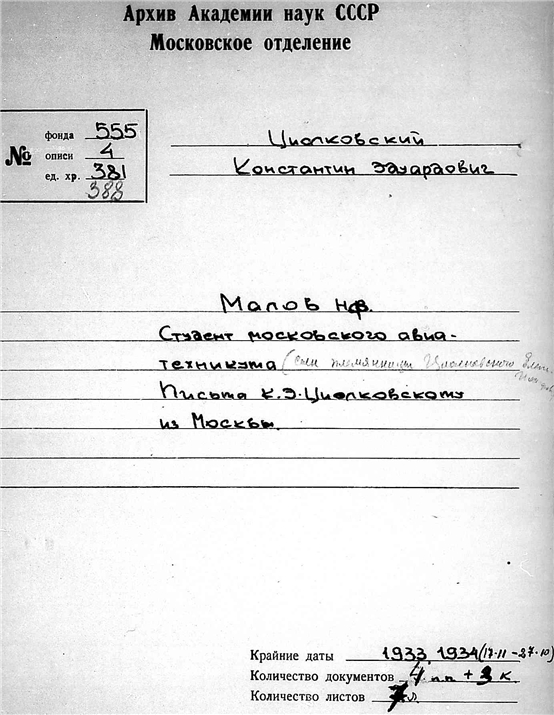 Архив Академии наук СССР
Московское отделение
№
фонда 555
описи 4
ед. хр. 381
388
Циолковский
Константин Эдуардович
Малов Н.Ф.
Студент московского авиа-
техникума (сын племянницы Циолковского
Письма К.Э.Циолковскому
из Москвы.
Крайние даты 1933, 1934 (17.11 - 27.10)
Количество документов 4 пп + 3 к
Количество листов 7 л.